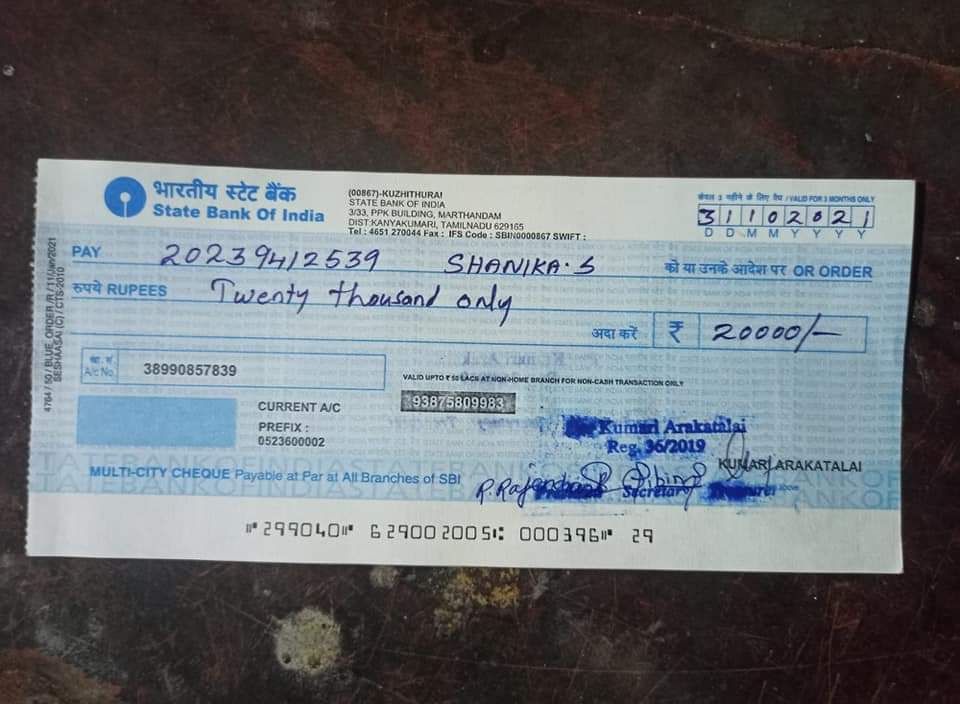 भारतीय स्टेट बैंक
State Bank Of India
(00867)-KUZHITHURAI
STATE BANK OF INDIA
3/33, PPK BUILDING, MARTHANDAM
DIST:KANYAKUMARI, TAMILNADU 629165
Tel : 4651 270044 Fax : IFS Code : SBIN0000867 SWIFT :
केवल 3 महीने के लिए वैध / VALID FOR 3 MONTHS ONLY
31102021
D D M M Y Y Y Y
PAY 20239412539 SHANIKA.S को या उनके आदेश पर OR ORDER
रुपये RUPEES Twenty thousand only
अदा करें ₹ 20000/-
खा. सं.
A/c No.
38990857839
VALID UPTO ₹ 50 LACS AT NON-HOME BRANCH FOR NON-CASH TRANSACTION ONLY
93875809983
CURRENT A/C
PREFIX :
0523600002
Kumari Arakatalai
Reg. 36/2019
KUMARI ARAKATALAI
MULTI-CITY CHEQUE Payable at Par at All Branches of SBI
Secretary
above
⑈299040⑈ 629002005⑆ 000396⑈ 29
4764 / 50 / BLUE_ORDER /R / 11/Jan/2021
SESHAASAI (C) / CTS-2010